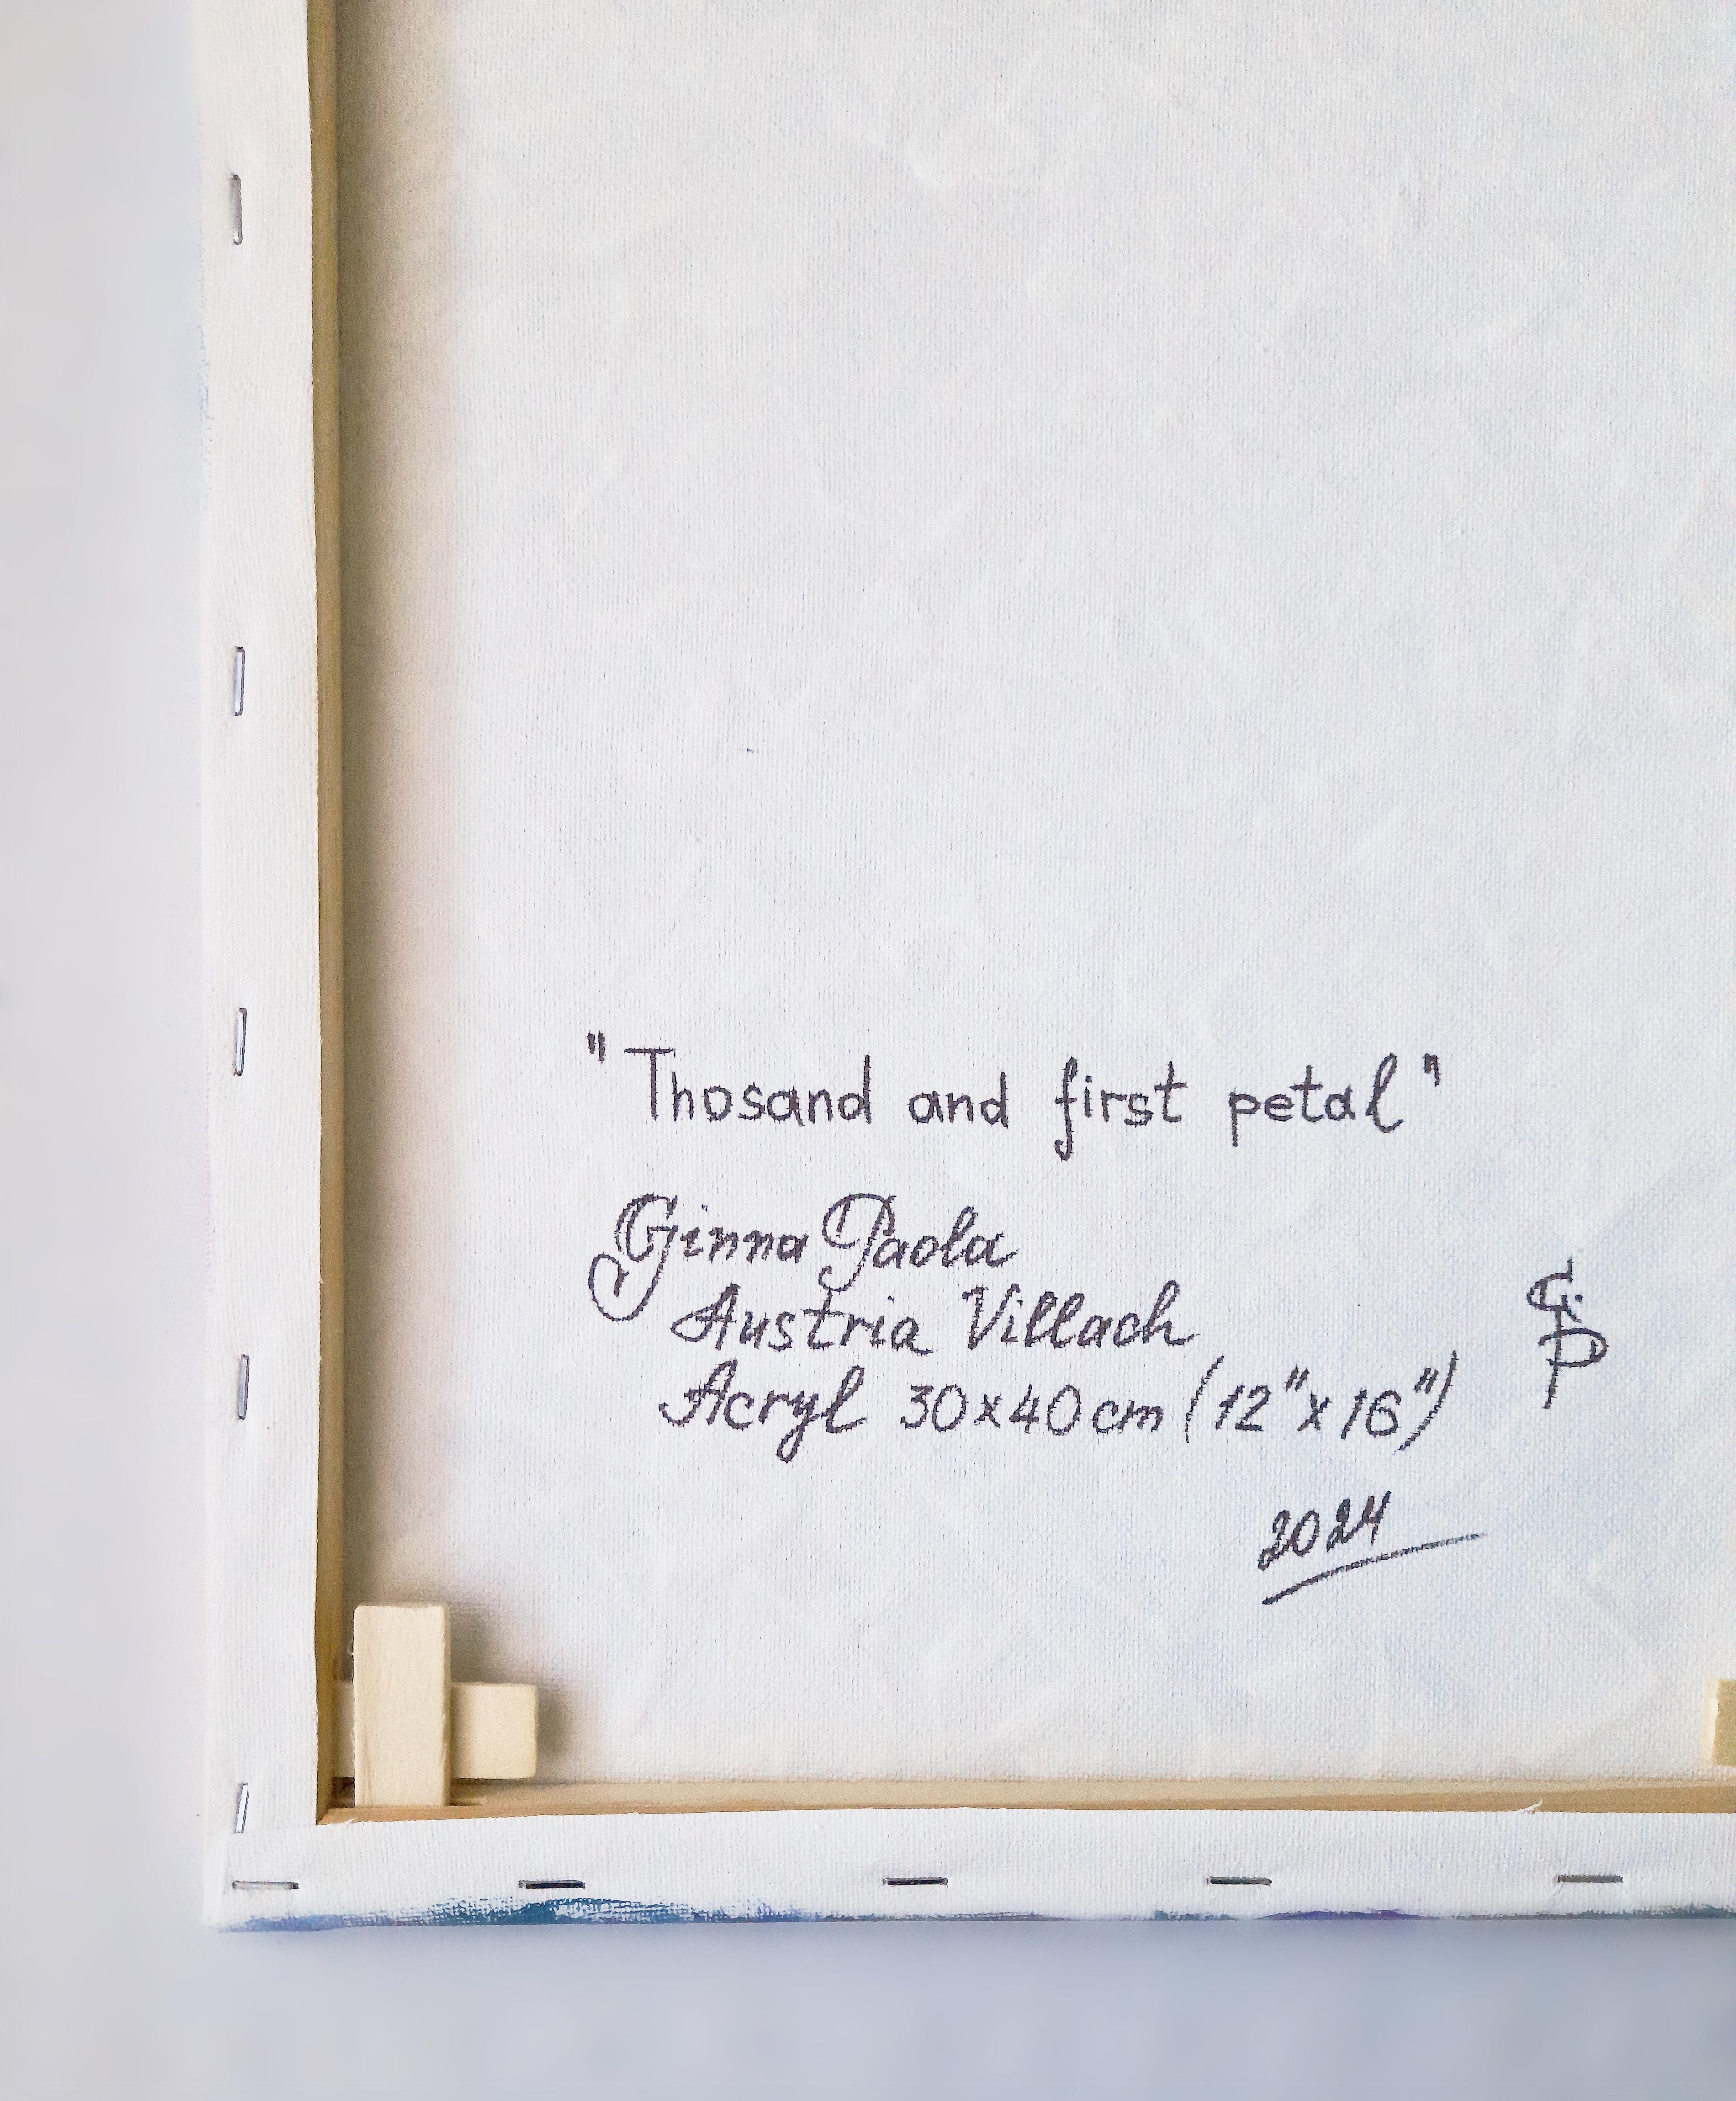 "Thosand and first petal"
Ginna Paola
Austria Villach
Acryl 30x40cm (12"x16")
G.P
2024